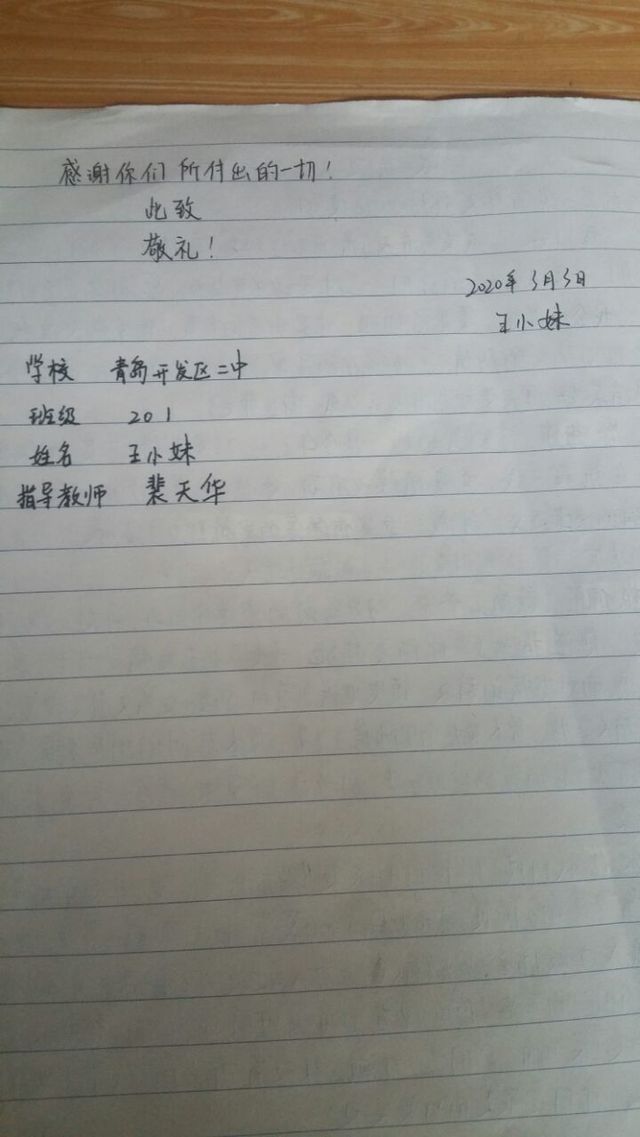 感谢你们所付出的一切！
此致
敬礼！
2020年3月3日
王小妹
学校 青岛开发区二中
班级 201
姓名 王小妹
指导教师 裴天华